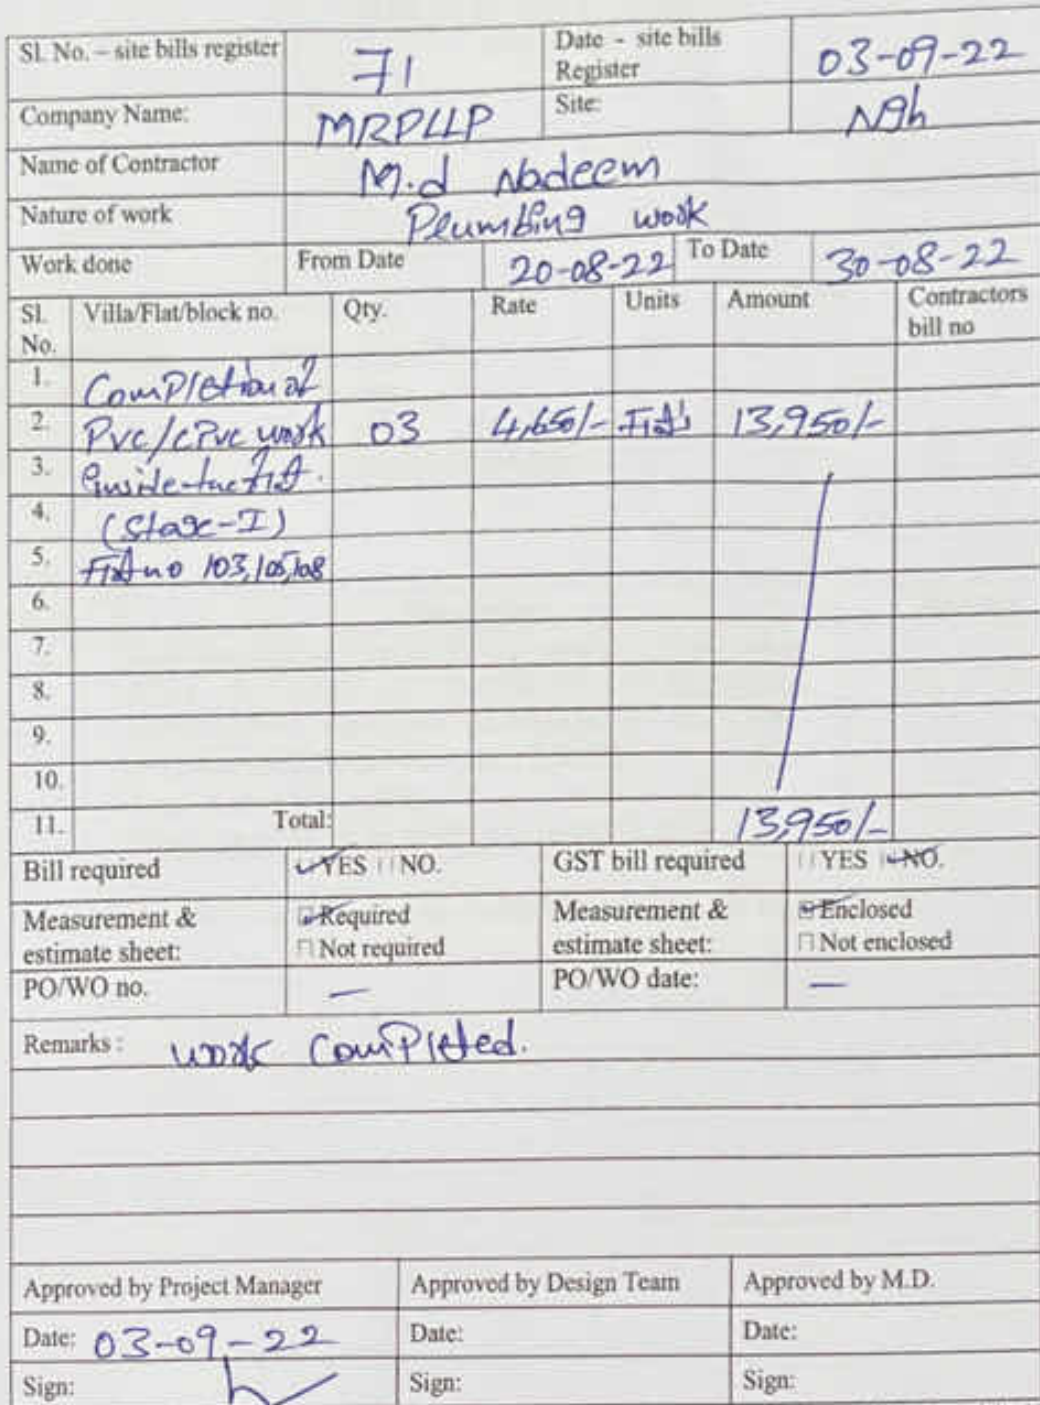 Sl. No. – site bills register 71 Date - site bills Register 03-09-22
Company Name: MRPLLP Site: NGh
Name of Contractor M.d Nadeem
Nature of work Plumbing work
Work done From Date 20-08-22 To Date 30-08-22
Sl. No. Villa/Flat/block no. Qty. Rate Units Amount Contractors bill no
1. Completion of
2. PVC/CPVC work 03 4,650/- Flat's 13,950/-
3. inside the flat.
4. (Stage-I)
5. Flat no 103,105,108
6.
7.
8.
9.
10.
11. Total: 13,950/-
Bill required YES NO. GST bill required YES NO.
Measurement & estimate sheet: Required Measurement & estimate sheet: Enclosed
Not required Not enclosed
PO/WO no. — PO/WO date: —
Remarks : work Completed.
Approved by Project Manager Approved by Design Team Approved by M.D.
Date: 03-09-22 Date: Date:
Sign: Sign: Sign: